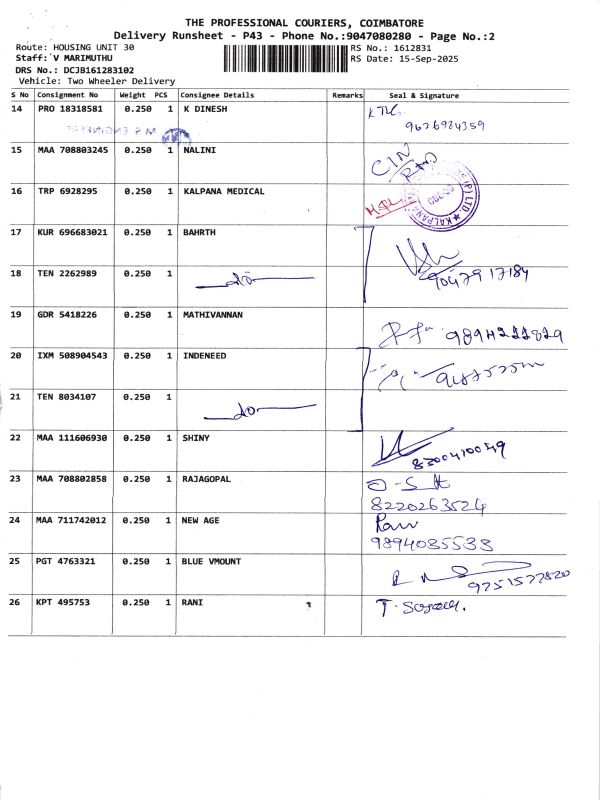 THE PROFESSIONAL COURIERS, COIMBATORE
Delivery Runsheet - P43 - Phone No.:9047080280 - Page No.:2
Route: HOUSING UNIT 30 RS No.: 1612831
Staff: V MARIMUTHU RS Date: 15-Sep-2025
DRS No.: DCJB161283102
Vehicle: Two Wheeler Delivery
S No Consignment No Weight PCS Consignee Details Remarks Seal & Signature
14 PRO 18318581 0.250 1 K DINESH
9626984359
15 MAA 708803245 0.250 1 NALINI
16 TRP 6928295 0.250 1 KALPANA MEDICAL
17 KUR 696683021 0.250 1 BAHRTH
18 TEN 2262989 0.250 1 do 9047917184
19 GDR 5418226 0.250 1 MATHIVANNAN
20 IXM 508904543 0.250 1 INDENEED
21 TEN 8034107 0.250 1 do
22 MAA 111606930 0.250 1 SHINY
8200410049
23 MAA 708802858 0.250 1 RAJAGOPAL
8220263524
24 MAA 711742012 0.250 1 NEW AGE
9894035533
25 PGT 4763321 0.250 1 BLUE VMOUNT
9751577820
26 KPT 495753 0.250 1 RANI